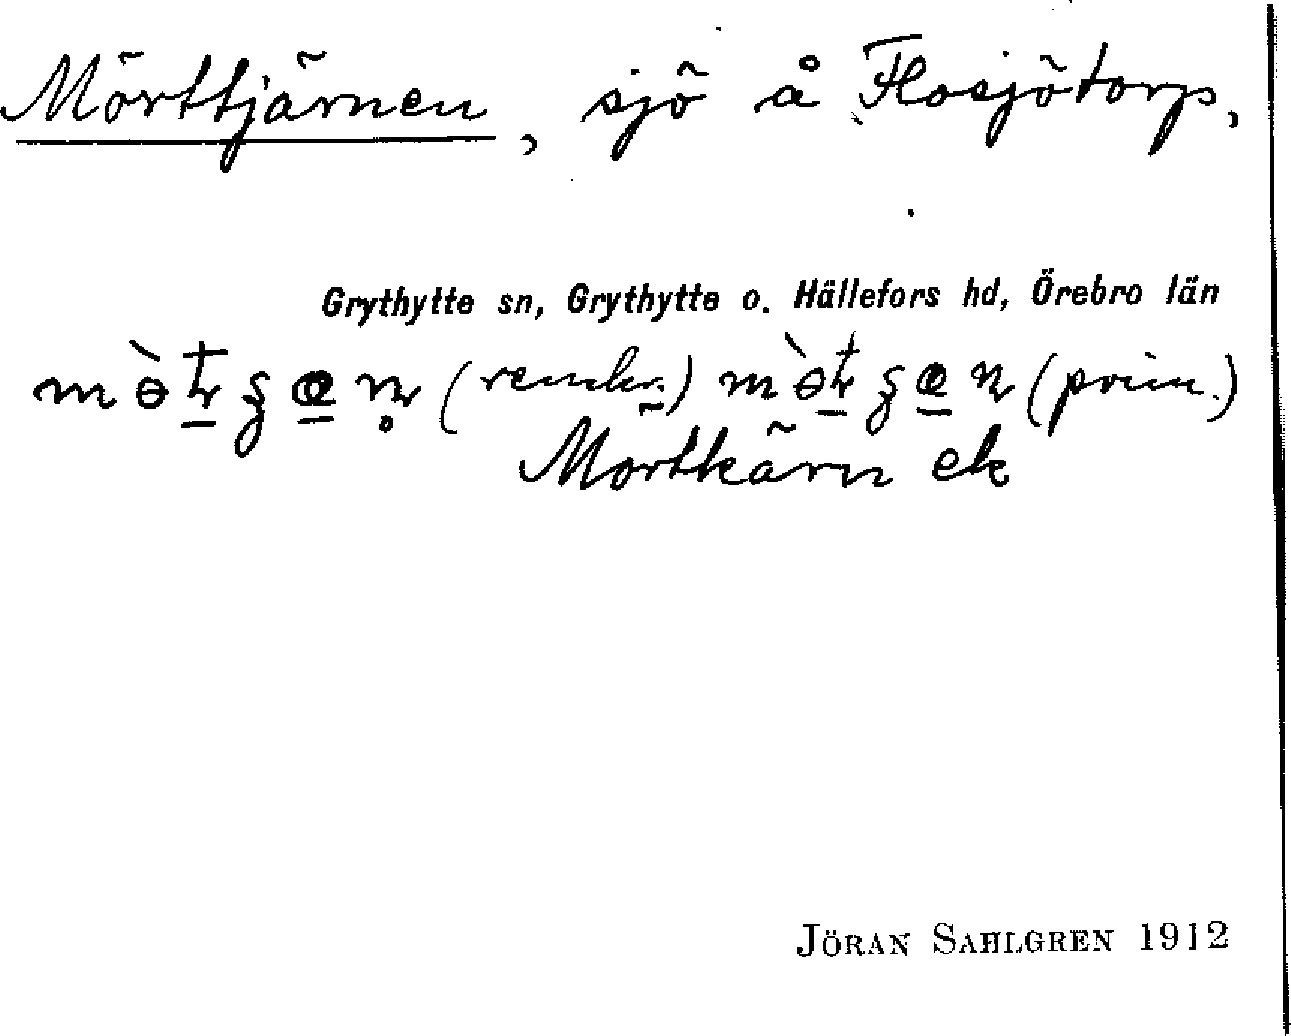 Mörttjärnen, sjö å Flosjötorp,
Grythytte sn, Grythytte o. Hällefors hd, Örebro län
(prim.)
Mortkärn ek
JÖRAN SAHLGREN 1912